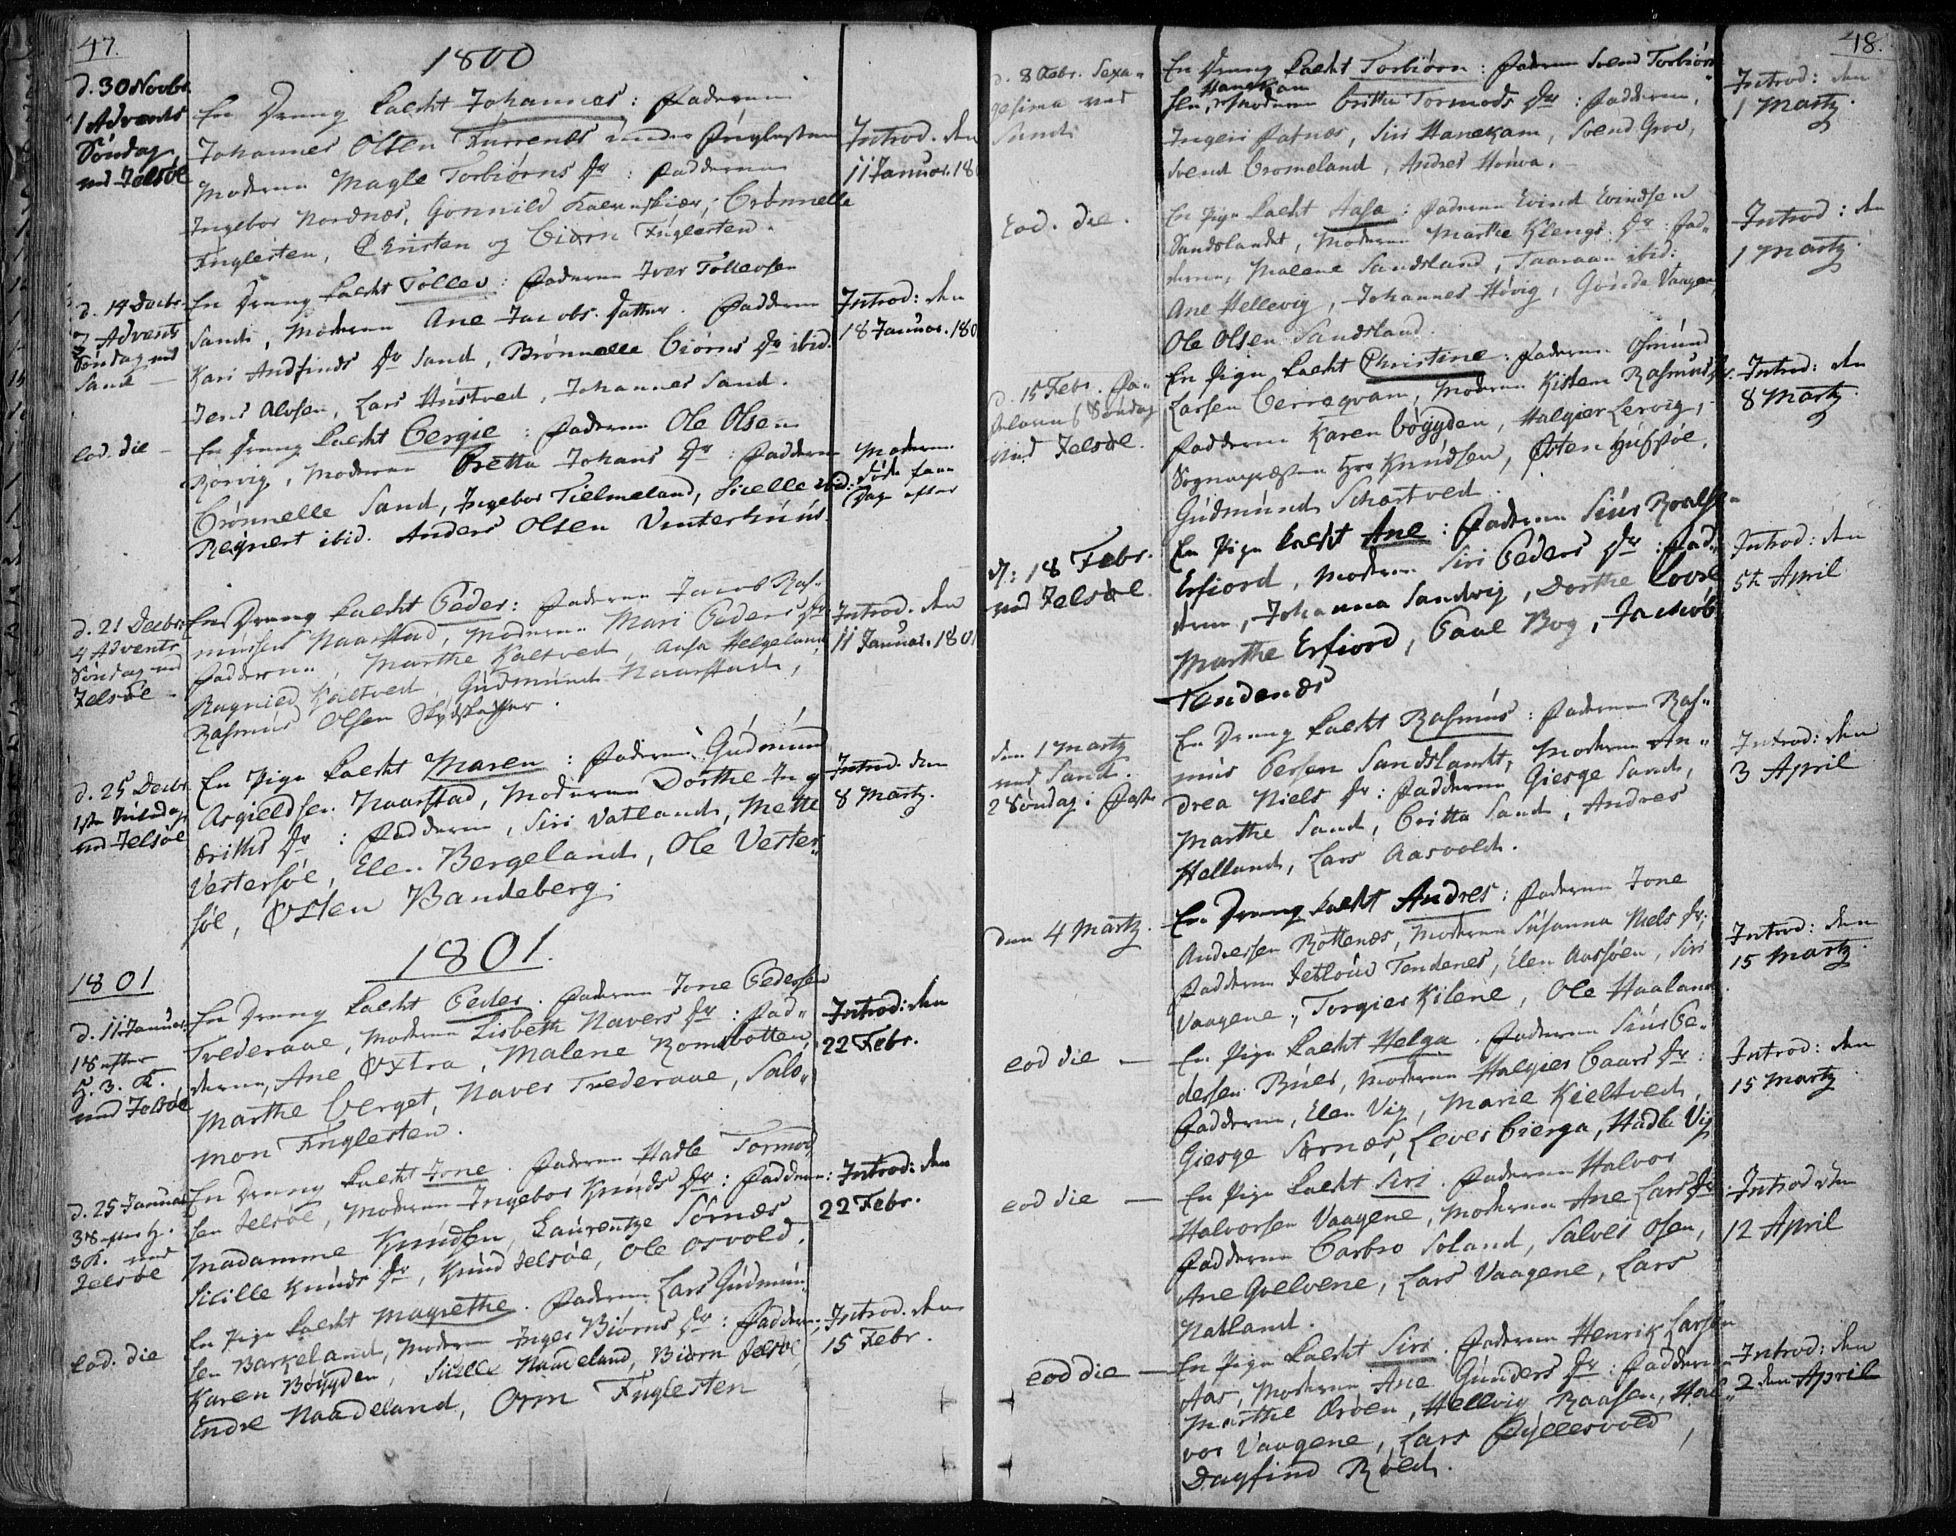 47.
1800
d. 30 Novbr.
1 Advents
Søndag
ved Jelsøe
En Dreng kaldt Johannes: Faderen
Johannes Olsen under Fuglesteen
Moderen Magle Torbiørns Dr: Fadderne
Ingebor Nordnæs, Gonnild Brønnelle
Fuglesten, Christen og Biørn Fuglesten.
Introd. den
11 Januar. 180
d. 14 Decbr.
3 Advents
Søndag ved
Sand
En Dreng kaldt Tollev: Faderen Iver Tollevsen
Sand, Moderen Ane Jacobs Datter. Fadderne
Kari Andfinds Dr Sand, Brønnelle Biørns Dr ibid.
Jens Alvsen, Lars Hustved, Johannes Sand.
Introd: den
18 Januar. 180
eod. die
En Dreng kaldt Bergie: Faderen Ole Olsen
Rørvig, Moderen Bretta Johans Dr: Fadderne
Brønnelle Sand, Ingebor Tielmeland, Sicelle ibid:
Regnert ibid. Anders Olsen Vinterhuus.
Moderen
døde faae
Dage efter
d. 21 Decbr.
4 Advents
Søndag ved
Jelsøe
En Dreng kaldt Peder: Faderen Jacob Ras-
mussen Naarstad, Moderen Mari Peders Dr
Fadderne Marthe Kaltved, Aasa Helgeland,
Ragnild Kaltved, Gudmund Naarstad,
Rasmus Olsen Skydskaffer.
Introd. den
11 Januar. 1801
d. 25 Decbr.
1ste Juledag
ved Jelsøe
En Pige kaldt Maren: Faderen Gudmund
Asgieldsen Naarstad, Moderen Dorthe Ing
briths Dr: Fadderne, Siri Vatland, Mette
Vestersøe, Elen Bergeland, Ole Vester-
søe, Østen Bandeberg.
Introd. den
8 Martz.
1801.
1801
d. 11 Januar.
1 S. efter
H. 3. K.
ved Jelsøe
En Dreng kaldt Peder. Faderen Jone Pedersen
Trederaae, Moderen Lisbeth Navers Dr: Fad-
derne, Ane Øxtra, Malene Romsbotten,
Marthe Berget, Naver Trederaae, Salo-
mon Fuglesten.
Introd: den
22 Febr.
d. 25 Januar
3 S. efter H.
3 K. ved
Jelsøe
En Dreng kaldt Jone. Faderen Hadle Tormod
sen Jelsøe, Moderen Ingebor Knuds Dr: Fadderne:
Madamme Knudsen, Laurentze Sørnæs
Sicille Knuds Dr, Knud Jelsøe, Ole Osvold.
Introd: den
22 Febr.
eod. die
En Pige kaldt Magrethe. Faderen Lars Gudmun-
sen Barkeland, Moderen Inger Biørns Dr: Fadderne,
Karen Bøygden, Sicelle Naadeland, Biørn Jelsøe,
Endre Naadeland, Orm Fuglesten
Introd. den
15 Febr.
48.
d. 8 Febr. Sexa-
gesima ved
Sand
En Dreng kaldt Torbiørn: Faderen Svend Torbiørn
sen Hanekam, Moderen Britha Tormods Dr: Fadderne,
Ingeri Fatnæs, Siri Hanekam, Svend Groe,
Svend Bromeland, Andres Houva.
Introd: den
1 Martz.
Eod. die.
En Pige kaldt Aasa: Faderen Evind Evindsen
Sandslandet, Moderen Marthe Klengs Dr: Fad-
derne, Malene Sandsland, Taaraan ibid:
Ane Hellevig, Johannes Høvig, Gunde Vaagen
Ole Olsen Sandsland.
Introd: den
1 Martz.
d. 15 Febr. Fa-
stelavns Søndag
ved Jelsøe.
En Pige kaldt Christine: Faderen Osmund
Larsen Berreqvam, Moderen Kisten Rasmus Dr.
Fadderne Karen Bøygden, Halgier Lervig,
Sognepresten Hr Knudsen, Østen Huusøe,
Gudmund Schartved.
Introd: den
8 Martz.
d: 18 Febr.
ved Jelsøe.
En Pige kaldt Ane: Faderen Siur Roals-
Erfiord, Moderen Siri Peders Dr: Fad-
derne, Johanna Sandvig, Dorthe Lovre
Marthe Erfiord, Paal Bog, Jackob
Tendenæs
Introd: den
5te April
den 1 Martz
ved Sand.
2 Søndag i Faste
En Dreng kaldt Rasmus: Faderen Ras-
mus Persen Sandslandt, Moderen An-
drea Niels Dr: Fadderne Giesge Sand,
Marthe Sand, Britta Sand, Andres
Helland, Lars Aasvold.
Introd: den
3 April
den 4 Martz.
En Dreng kaldt Andres: Faderen Jone
Andersen Røttenæs, Moderen Susanna Niels Dr:
Fadderne Jetlouv Tendenes, Elen Aarsøen, Siri
Vaagene, Torgier Kilene, Ole Haaland.
Introd: den
15 Martz.
eod die
En Pige kaldt Helga. Faderen Siur Pe-
dersen Buer, Moderen Halgier Baars Dr:
Fadderne, Elen Vig, Marie Kieltved,
Giesge Sørnæs, Lever Bierga, Hadle Vig
Introd: den
15 Martz
eod die
En Pige kaldt Siri. Faderen Halvor
Halvorsen Vaagene, Moderen Ane Lars Dr
Fadderne Barbro Soland, Salves Osen,
Ane Qvelvene, Lars Vaagene, Lars
Natland.
Introd den
12 April
eod die
En Pige kaldt Siri. Faderen Henrik Larsen
Aas, Moderen Ane Gunders Dr: Fadderne
Marthe Øroen, Hellvig Raasen, Hal-
vor Vaagene, Lars Fyllesvold,
Dagfind Røed.
Introd: den
2 den April